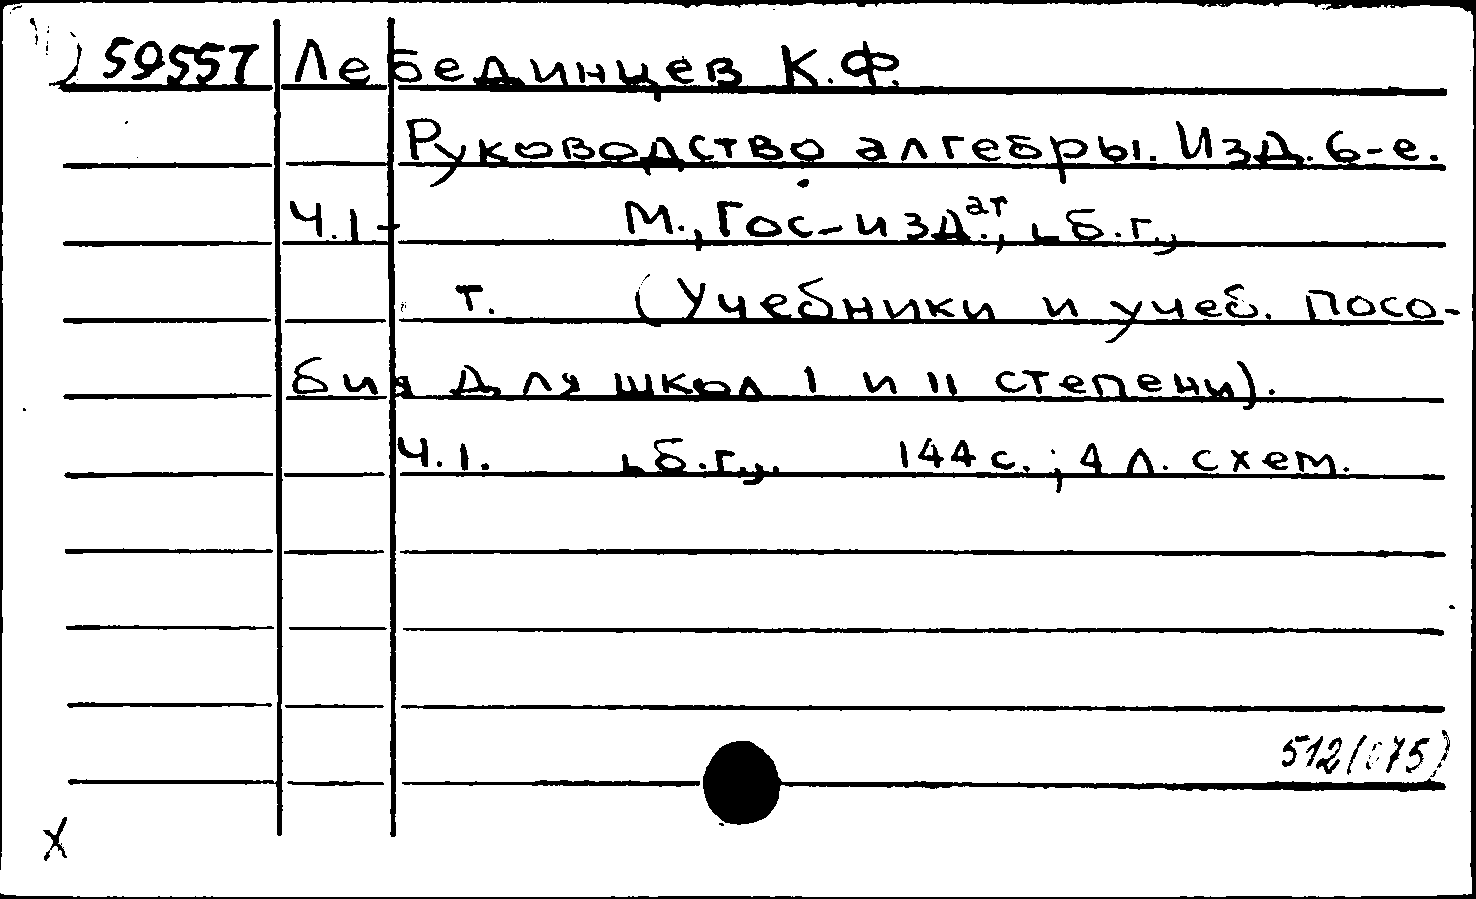 59557 Лебединцев К.Ф.
Руководство алгебры. Изд. 6-е.
Ч.1- М., Гос-издат., [б.г.,
т. (Учебники и учеб. посо-
бия для школ I и II степени).
Ч.1. [б.г., 144 с.; 4 л. схем.
512(075)
X